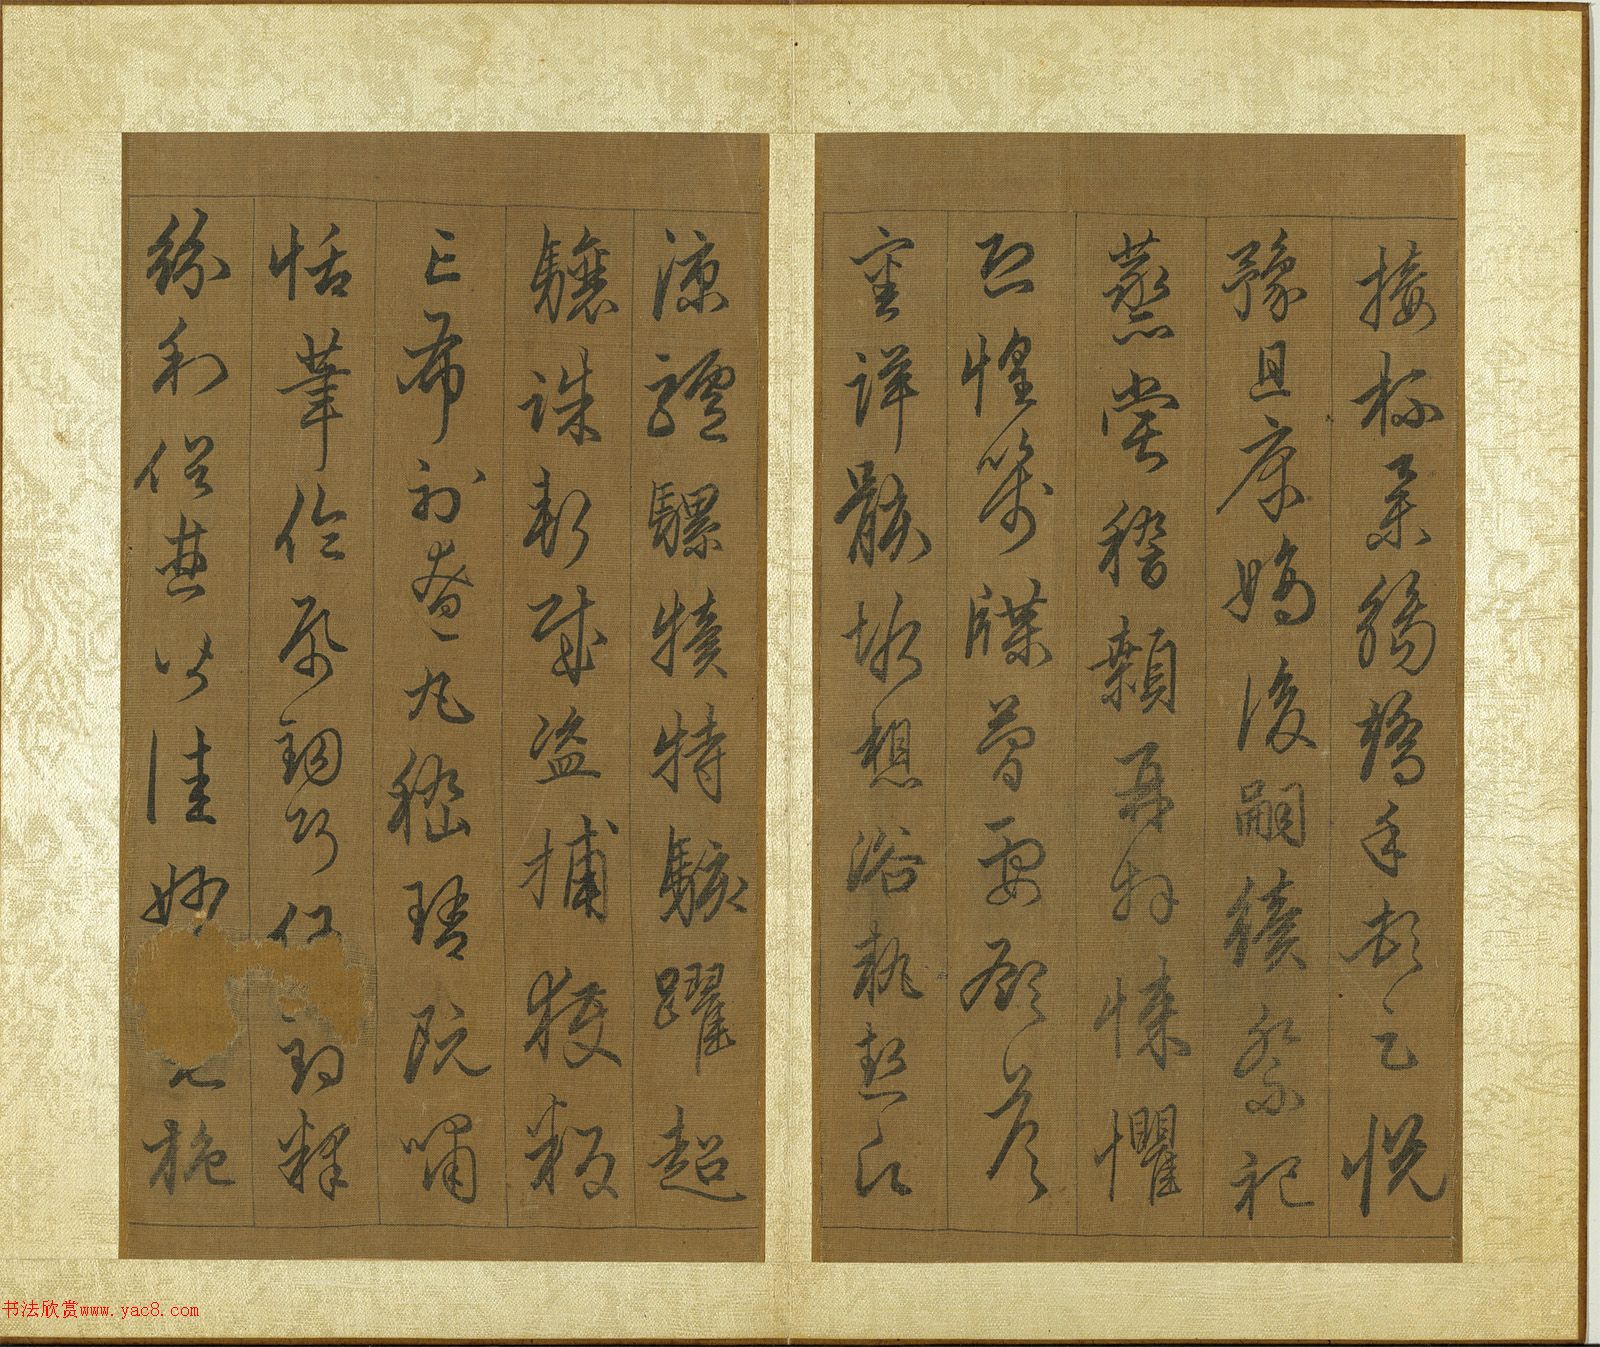 接杯舉觴矯手頓足悅
豫且康嫡後嗣續祭祀
蒸嘗稽顙再拜悚懼
恐惶箋牒簡要顧答
審詳骸垢想浴執熱願
涼驢騾犢特駭躍超
驤誅斬賊盜捕獲叛
亡布射遼丸嵇琴阮嘯
恬筆倫紙鈞巧任釣釋
紛利俗並皆佳妙毛施
书法欣赏www.yac8.com